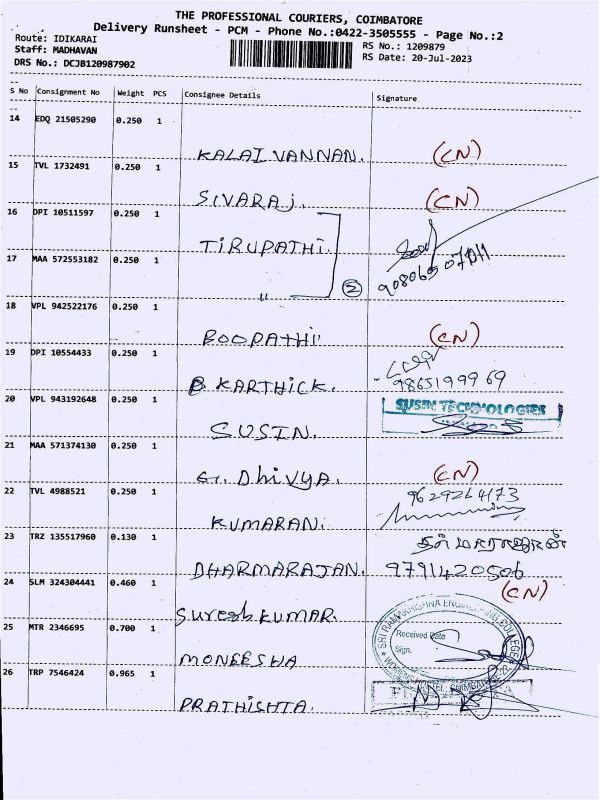 THE PROFESSIONAL COURIERS, COIMBATORE
Delivery Runsheet - PCM - Phone No.:0422-3505555 - Page No.:2
Route: IDIKARAI RS No.: 1209879
Staff: MADHAVAN RS Date: 20-Jul-2023
DRS No.: DCJB120987902
S No Consignment No Weight PCS Consignee Details Signature
14 EDQ 21505290 0.250 1
KALAIVANNAN. (CN)
15 TVL 1732491 0.250 1
SIVARAJ. (CN)
16 DPI 10511597 0.250 1
TIRUPATHI.
17 MAA 572553182 0.250 1
" 2
18 VPL 942522176 0.250 1
BOOPATHI (CN)
19 DPI 10554433 0.250 1
B KARTHICK. 9865199969
20 VPL 943192648 0.250 1 SUSIN TECHNOLOGIES
SUSIN.
21 MAA 571374130 0.250 1
G. DHIVYA. (CN)
22 TVL 4988521 0.250 1 9629264173
KUMARAN.
23 TRZ 135517960 0.130 1
DHARMARAJAN. 9791420506
24 SLM 324304441 0.460 1 (CN)
Suresh KUMAR. SRI RAMAKRISHNA ENGINEERING COLLEGE
25 MTR 2346695 0.700 1 Received Date
Sign.
MONEESHA
26 TRP 7546424 0.965 1
PRATHISHTA.